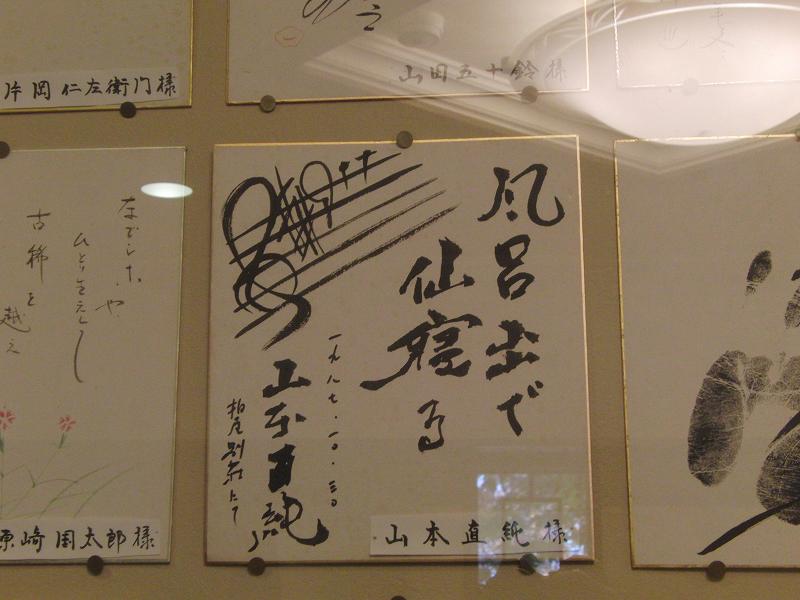 片岡仁左衛門様
山田五十鈴様
なでしこや
ひとり生えして
古稀を越え
原崎国太郎様
風呂出で
仙寝る
一九八七・一〇・三〇
山本直純
柏屋別荘にて
山本直純様